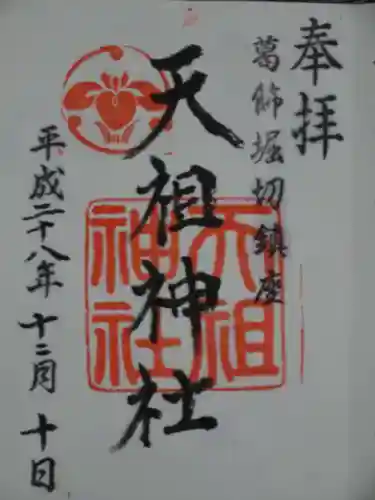 奉拝
葛飾堀切鎮座
天祖神社
天祖神社
平成二十八年十二月十日